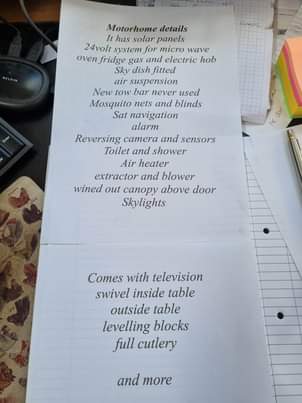 Motorhome details
It has solar panels
24volt system for micro wave
oven fridge gas and electric hob
Sky dish fitted
air suspension
New tow bar never used
Mosquito nets and blinds
Sat navigation
alarm
Reversing camera and sensors
Toilet and shower
Air heater
extractor and blower
wined out canopy above door
Skylights
Comes with television
swivel inside table
outside table
levelling blocks
full cutlery
and more